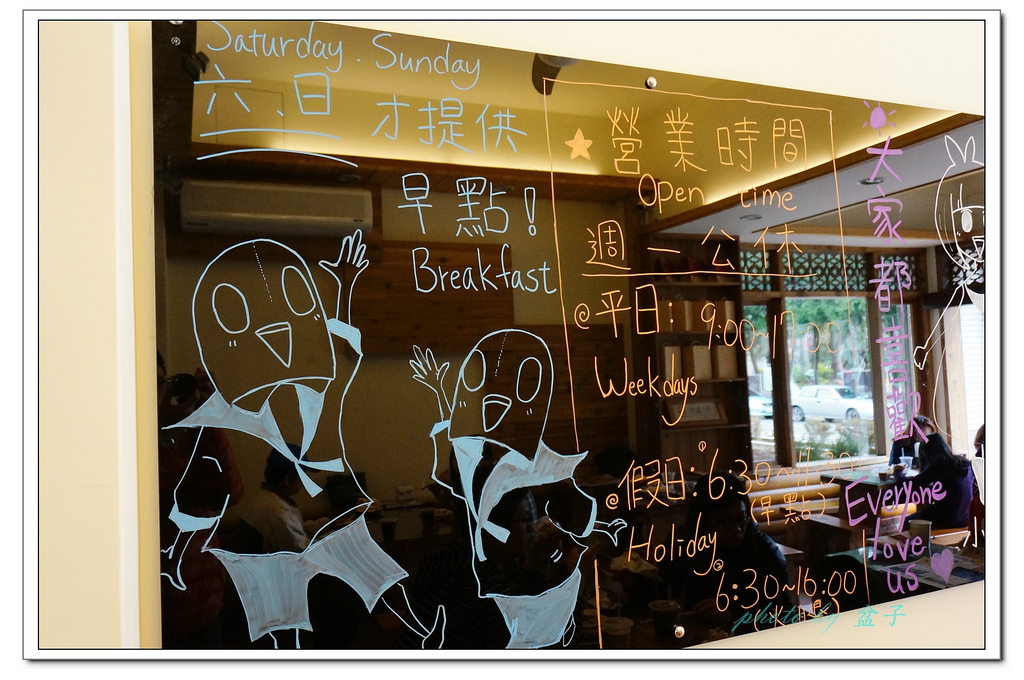 Saturday . Sunday
六、日 才提供
早點!
Breakfast
★營業時間
Open time
週一公休
@平日: 9:00~17:00
Weekdays
@假日: ①6:30~11:30
(早點)
Holiday
②6:30~16:00
大家都喜歡
Everyone
love
us
photo by 盆子